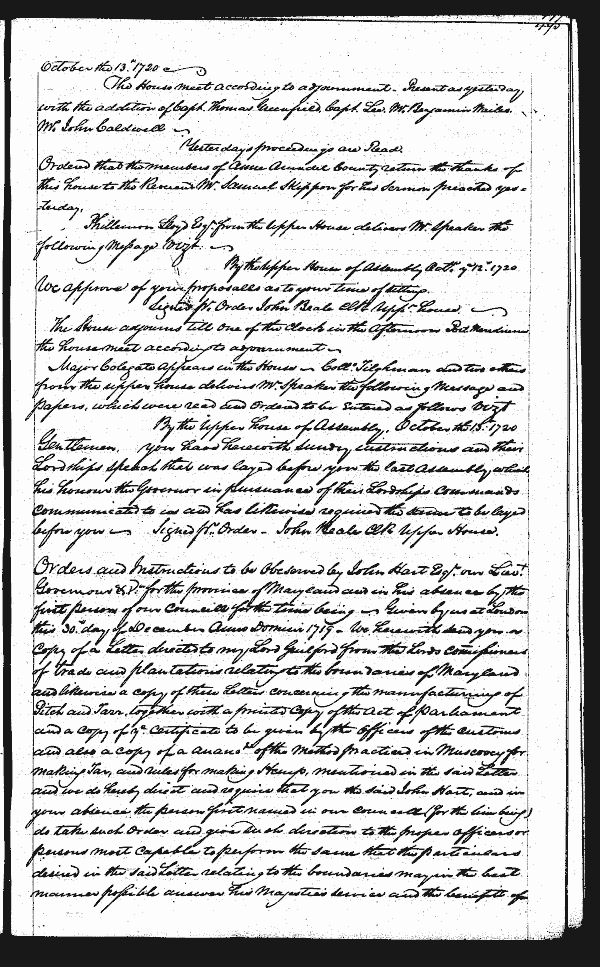 October the 13th. 1720
The House meet according to adjournment - Present as yesterday
with the addition of Capt. Thomas Greenfield, Capt. Leo. Mr. Benjamin Wailes.
Mr. John Caldwell
Yesterdays proceedings are Read.
Ordered that the members of Anne Arundel County return the thanks of
this house to the Reverend Mr. Samuel Skippon for his Sermon preached yes=
terday.
Phillemon Lloyd Esqr. from the Upper House delivers Mr. Speaker the
following Message Vizt.
By the Upper House of Assembly Octr. ye 12th. 1720
We approve of your proposalls as to your time of sitting.
Signed pr. Order John Beale Clk Uppr. house.
The House adjourns till One of the Clock in the Afternoon Post Meridiem
the house meet according to adjournment
Major Colegate Appears in the House - Coll. Tilghman and two others
from the upper house delivers Mr. Speaker the following Message and
papers, which were read and Ordered to be Entered as follows Vizt
By the Upper House of Assembly, October the 13th. 1720
Gentlemen, you have herewith sundry instructions and their
Lordships speech that was layed before you the last Assembly, which
his honour the Governor in pursuance of their Lordships commands
communicated to us and has likewise required the same to be layed
before you Signed pr. Order - John Beale Clk Upper House.
Orders and Instructions to be Observed by John Hart Esqr. our Lieut.
Governour &ca. for the province of Maryland and in his absence by the
first person of our Councill for the time being - Given by us at London
this 30th. day of December Anno Domini 1719 - We herewith send you a
Copy of a Letter directed to my Lord Guilford from the Lords comissioners
of trade and plantations relating to the boundaries of Maryland
and likewise a copy of three Letters concerning the manufacturing of
Pitch and Tarr, together with a printed Copy of the Act of Parliament
and a Copy of ye Certificate to be given by the Officers of the Customs
and also a copy of a of the Method practiced in Muscovy for
making Tar, and rules for making Hemp, mentioned in the said Letter
and we do hereby direct and require that you the said John Hart, and in
your absence the person first named in our councill (for the time being)
do take such Order and give such direction to the proper Officers or
persons most capable to perform the same that the particulars
desired in the said Letter relating to the boundaries may in the best
manner possible answer his Majesties service and the benefitt of